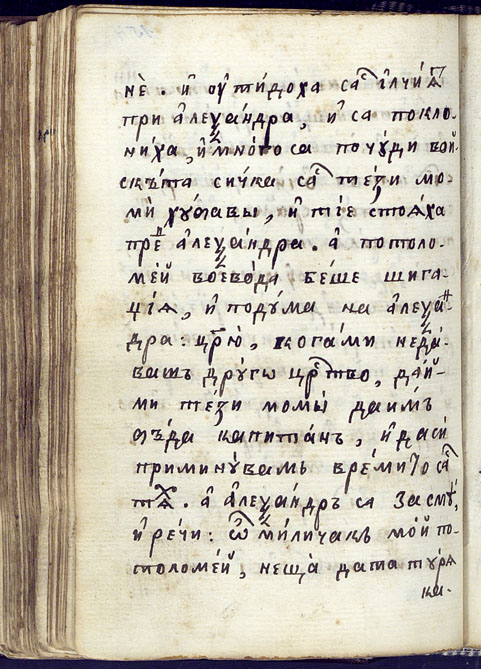 нѐ. и҆ ѹ҆тидоха са́с и҆лчиѧт
при а҆леѯа́ндра, и҆ са покло-
ниха, и҆ мно́го са почу́ди вой-
ска́та си́чка са́с те́зи мо-
мѝ ху́бавы, и҆ ті́е стоѧ́ха
пред а҆леѯа́ндра. а҆ потоло-
ме́й воево́да бе́ше шига-
џі́ѧ, и҆ поду́ма на а҆леѯа́н-
дра: цр҃ю̀, кога́ ми не да́-
вашъ дру́гѡ црⷭ҇тво, да́й-
ми те́зи момы̀ да и҆мъ
бъ́да капита́нъ, и҆ да сѝ
примину́вамъ вре́мито са́с
тѧ́х. а҆ а҆леѯа́ндръ са засмѝ,
и҆ ре́чи: ѿ ми́личакъ мо́й по-
толоме́й, не́ща да та ту́рѧ
ка-